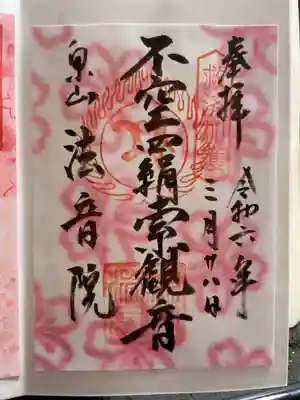 奉拝
令和六年
三月廿八日
不空羂索観音
泉山
法音院